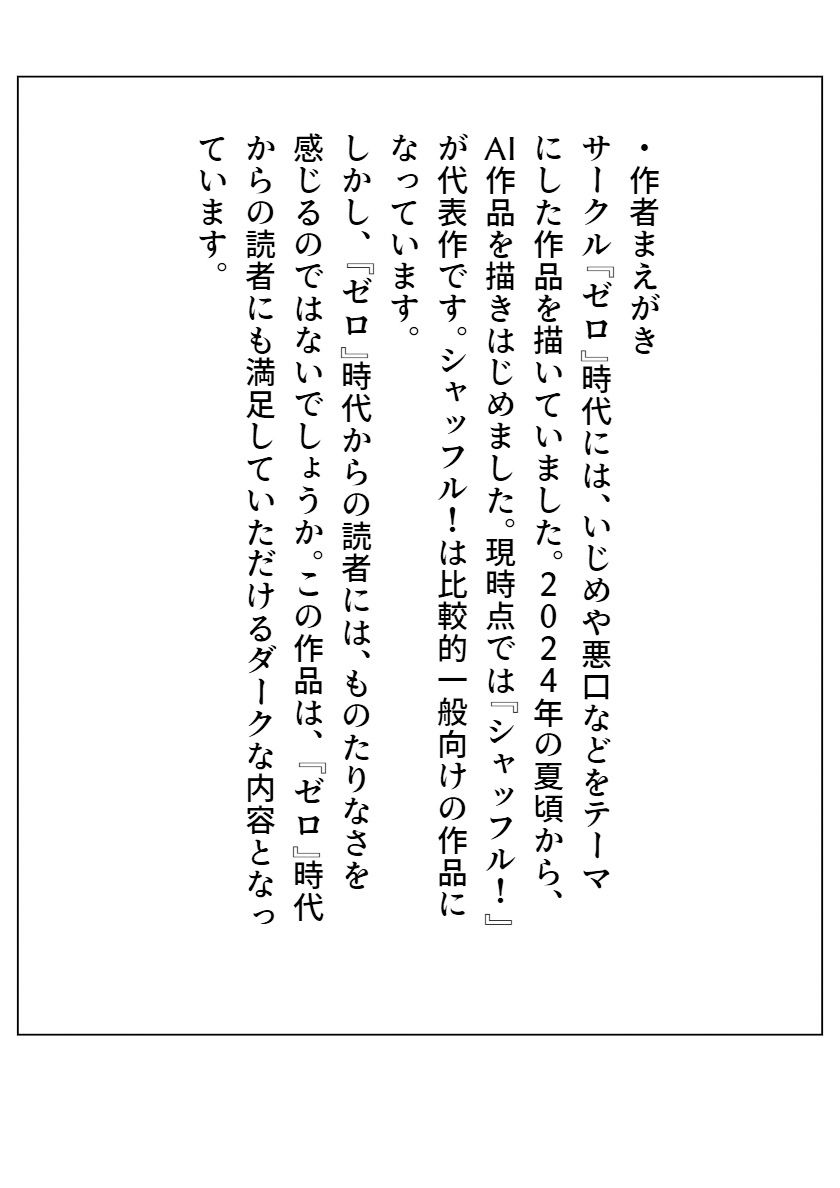 ・作者まえがき
サークル『ゼロ』時代には、いじめや悪口などをテーマ
にした作品を描いていました。2024年の夏頃から、
AI作品を描きはじめました。現時点では『シャッフル！』
が代表作です。シャッフル！は比較的一般向けの作品に
なっています。
しかし、『ゼロ』時代からの読者には、ものたりなさを
感じるのではないでしょうか。この作品は、『ゼロ』時代
からの読者にも満足していただけるダークな内容となっ
ています。